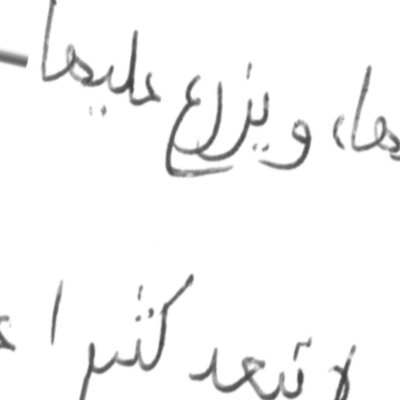 ها، ويزرع عليها
لا تبعد كثيرا